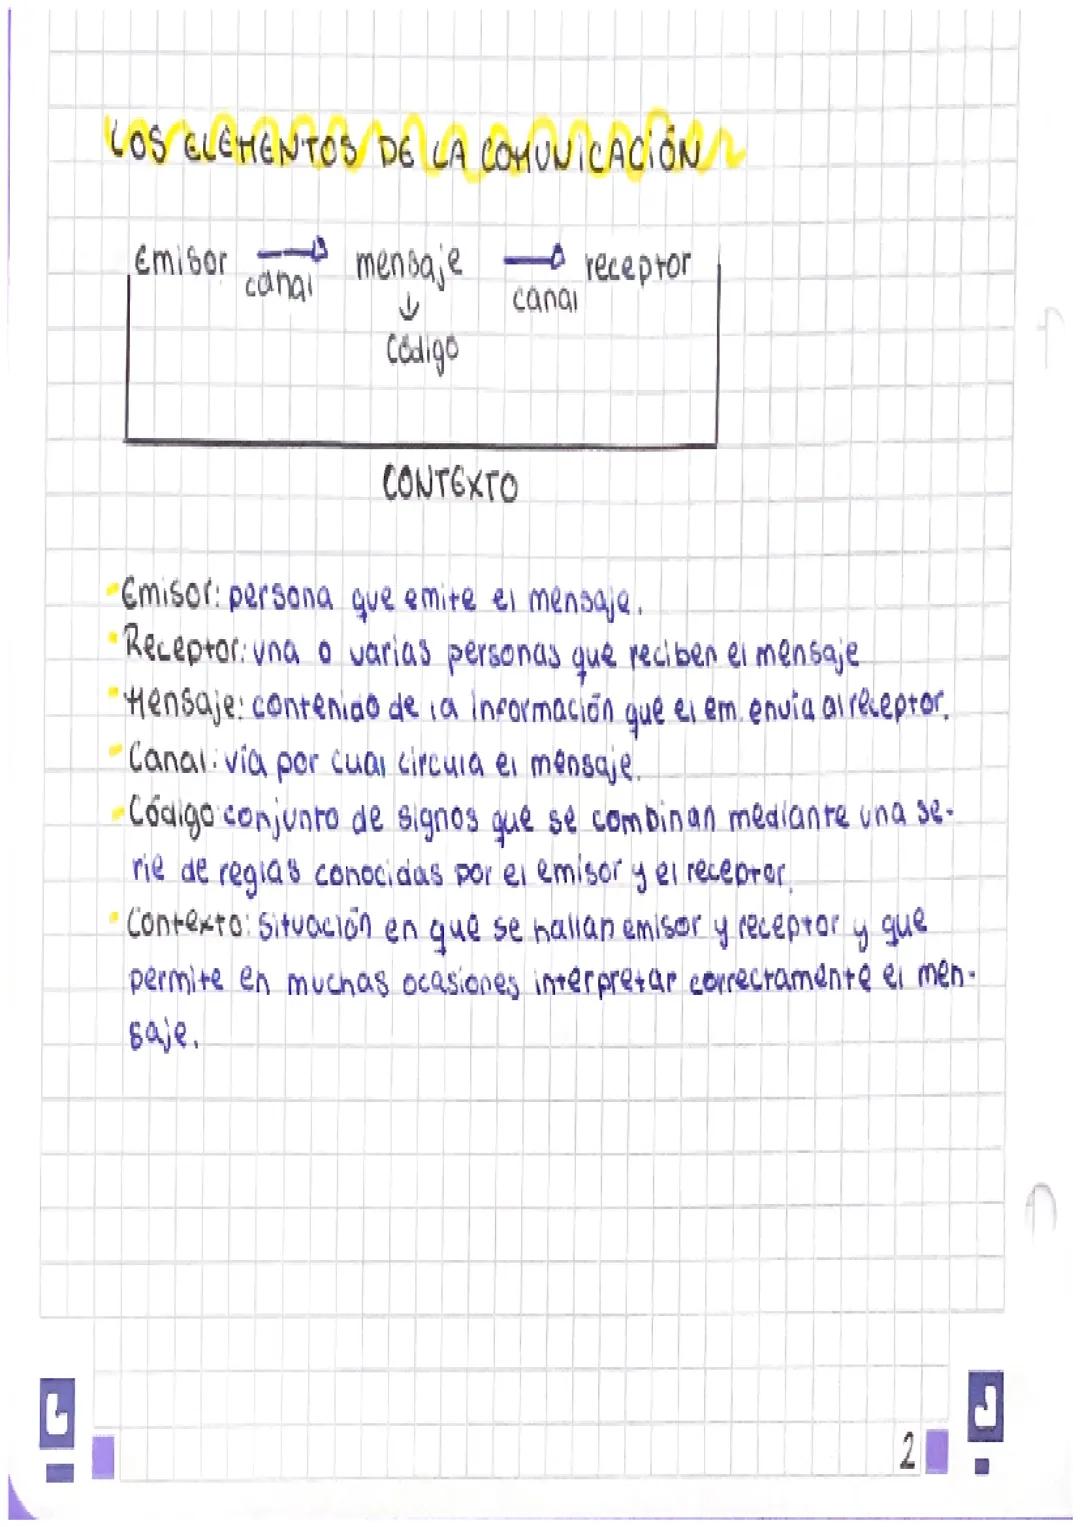 LOS ELEMENTOS DE LA COMUNICACIÓN
Emisor canal mensaje canal receptor
Código
CONTEXTO
Emisor: persona que emite el mensaje.
Receptor: una o varias personas que reciben el mensaje
Mensaje: contenido de la información que el em. envía al receptor.
Canal: vía por cual circula el mensaje.
Código: conjunto de signos que se combinan mediante una se-
rie de reglas conocidas por el emisor y el receptor.
Contexto: situación en que se hallan emisor y receptor y que
permite en muchas ocasiones interpretar correctamente el men-
saje.
2